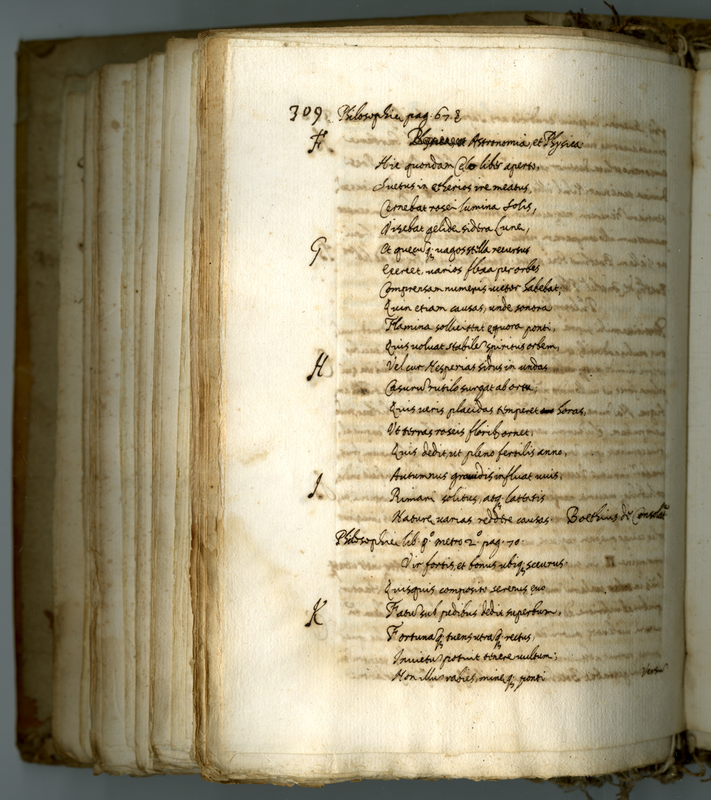 309 Philosophiæ pag. 678
F Astronomia, et Physica
Hic quondam Celo liber aperto,
Suetus in etherios ire meatus,
Cernebat rosei lumina Solis,
Visebat gelidę sidera Lunę,
G Et quecūq; vagos stilla recursus
Exercet, varios flexa per orbes
Comprensam numeris victor habebat,
Quin etiam causas, unde sonora
Flamina sollicitent equora ponti,
Quis voluat stabilē spiritus orbem,
H Vel cur Hesperias sidus in undas
Casurū rutilo surgat ab ortu;
Quis veris placidas temperet horas,
Vt terras roseis florib; ornet,
Quis dedit, ut pleno fertilis anno,
Autumnus gravidis influat uvis,
I Rimari solitus, atq; latentis
Naturę varias reddere causas. Boethius de Consolat.
Philosophiæ lib. pº. metro 2º. pag. 70.
Vir fortis, et bonus ubiq; securus.
Quisquis composito serenus ęuo
K Fatū sub pedibus dedit superbum,
Fortunāq; tuens utrāq; rectus,
Inuictū potuit tenere uultum;
Non illū rabies, minęq; ponti